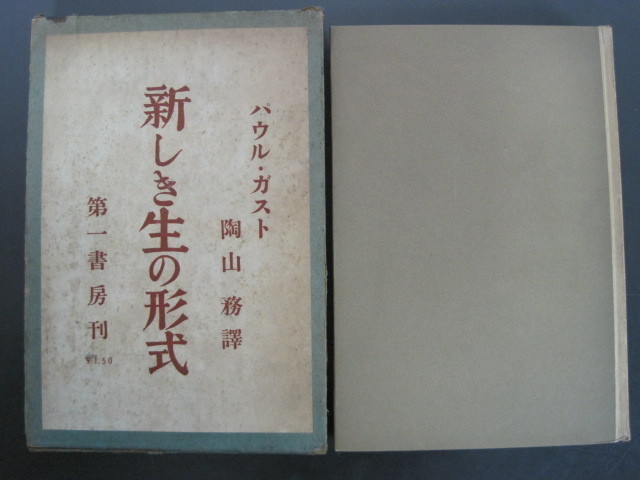 パウル・ガスト
陶山務譯
新しき生の形式
第一書房刊
¥1.50